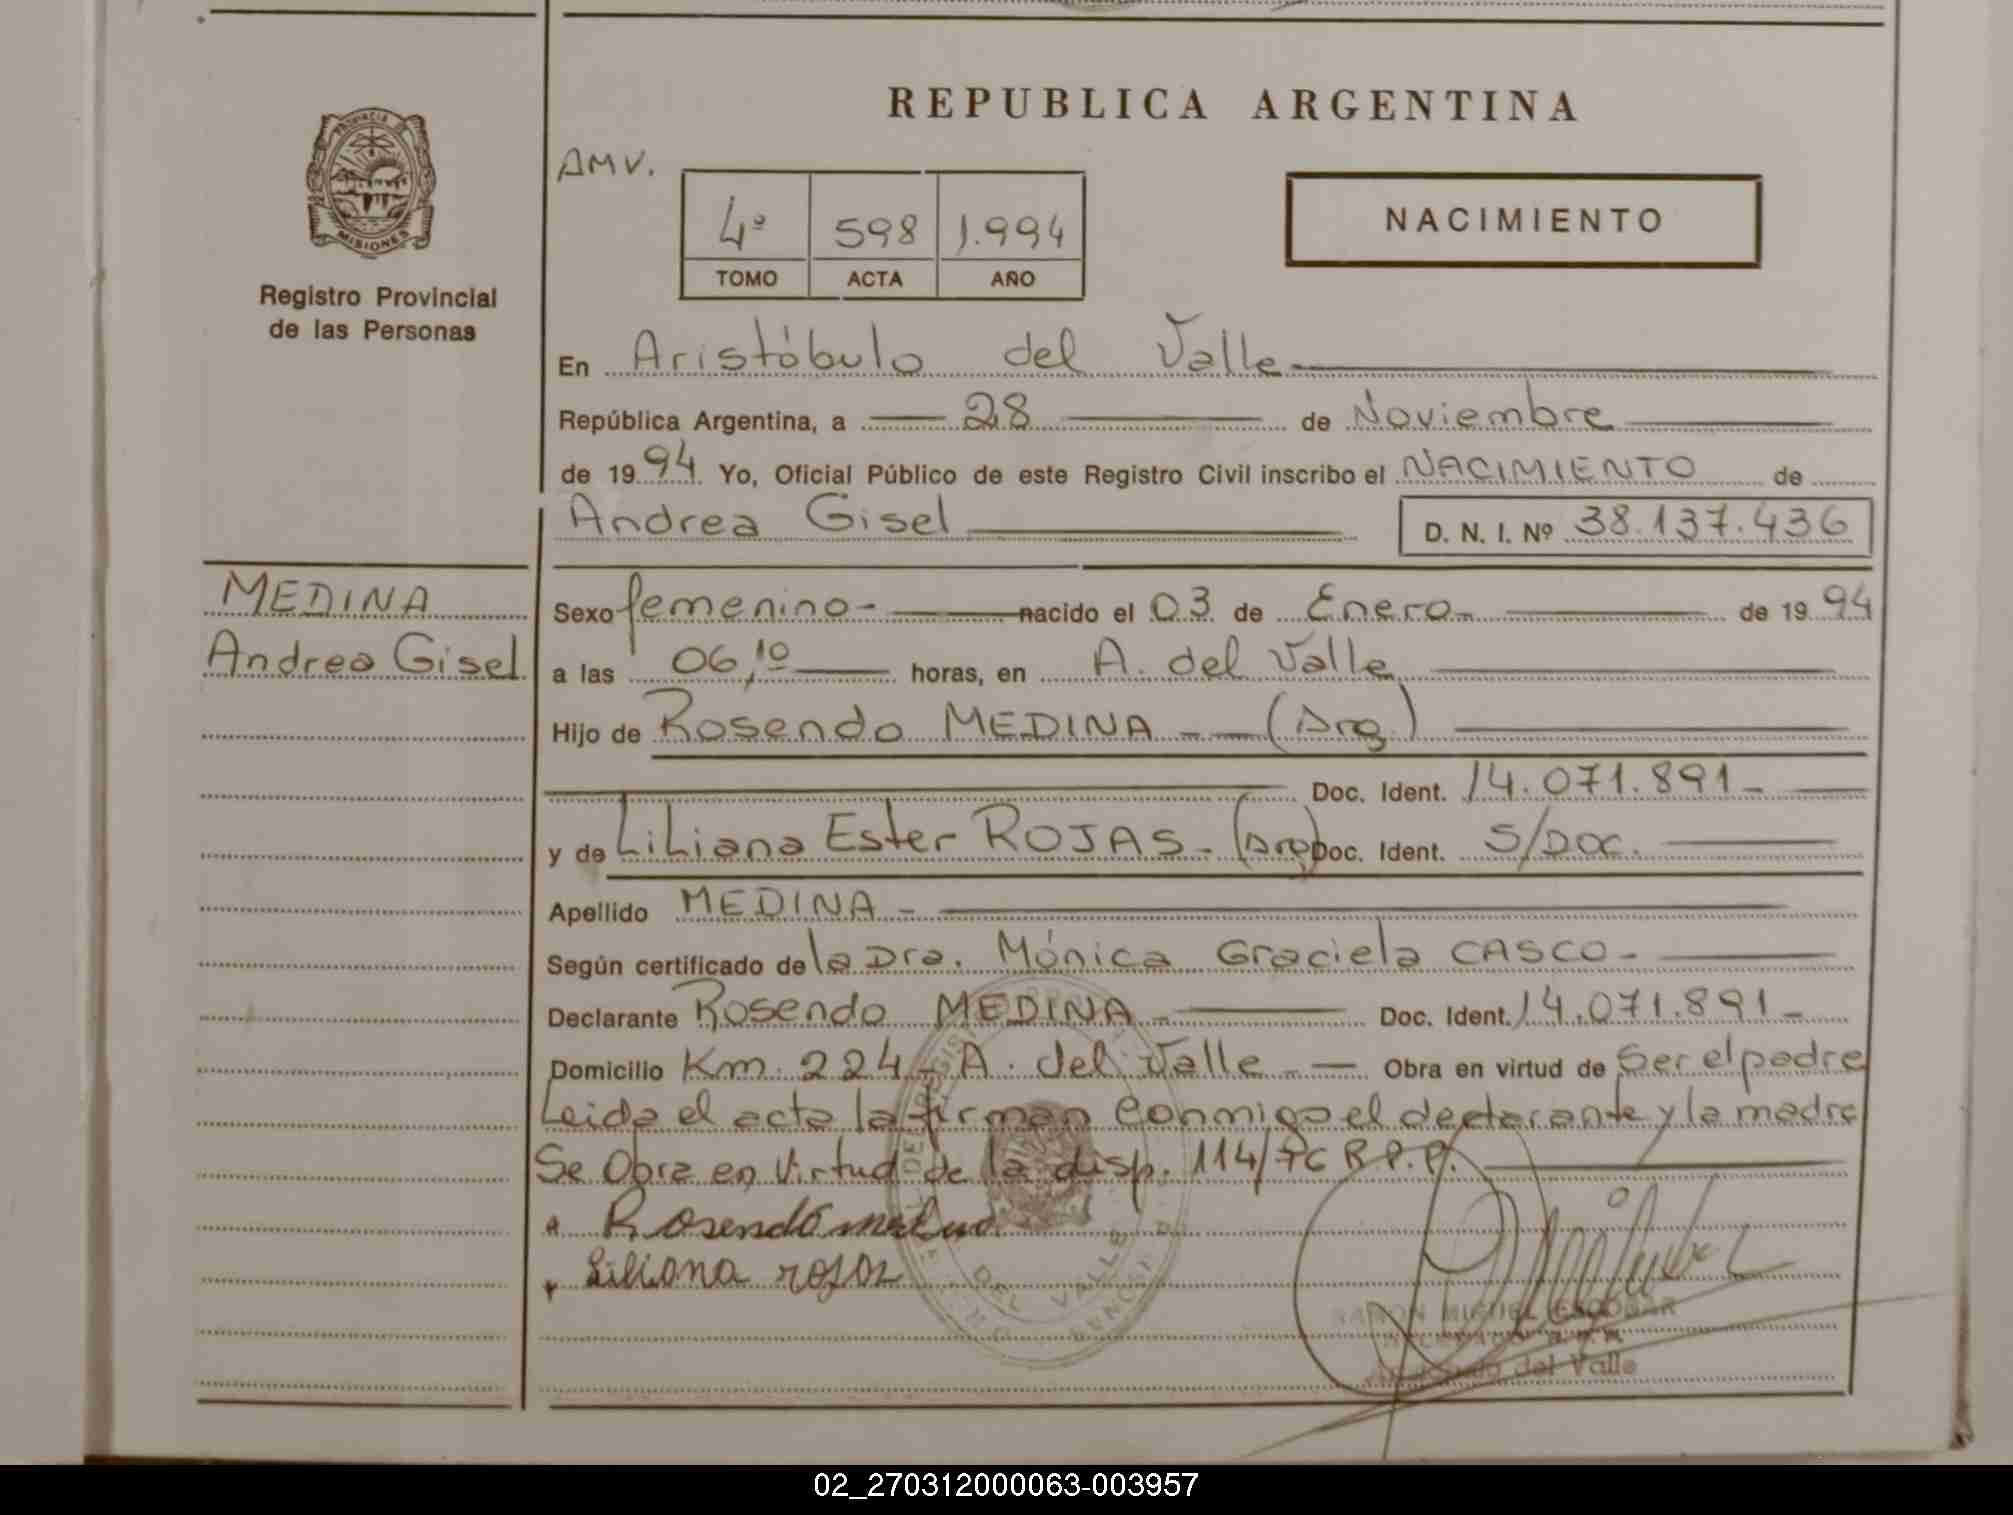 REPUBLICA ARGENTINA
PROVINCIA DE
MISIONES
Registro Provincial
de las Personas
AMV.
4º 598 1.994
TOMO ACTA AÑO
NACIMIENTO
En Aristóbulo del Valle
República Argentina, a 28 de Noviembre
de 1994 Yo, Oficial Público de este Registro Civil inscribo el NACIMIENTO de
Andrea Gisel D. N. I. Nº 38.137.436
MEDINA
Andrea Gisel
Sexo femenino - nacido el 03 de Enero - de 1994
a las 06,10 horas, en A. del Valle
Hijo de Rosendo MEDINA - (Arg.)
Doc. Ident. 14.071.891 -
y de Liliana Ester ROJAS - (Arg) Doc. Ident. S/Doc.
Apellido MEDINA -
Según certificado de la Dra. Mónica Graciela CASCO -
Declarante Rosendo MEDINA - Doc. Ident. 14.071.891 -
Domicilio Km. 224 - A. del Valle - Obra en virtud de Ser el padre
Leida el acta la firman conmigo el declarante y la madre
Se Obra en Virtud de la disp. 114/76 R.P.P.
Rosendo medina
Liliana rojas
DEL VALLE
RAMON MIGUEL ESCOBAR
Aristóbulo del Valle
02_270312000063-003957